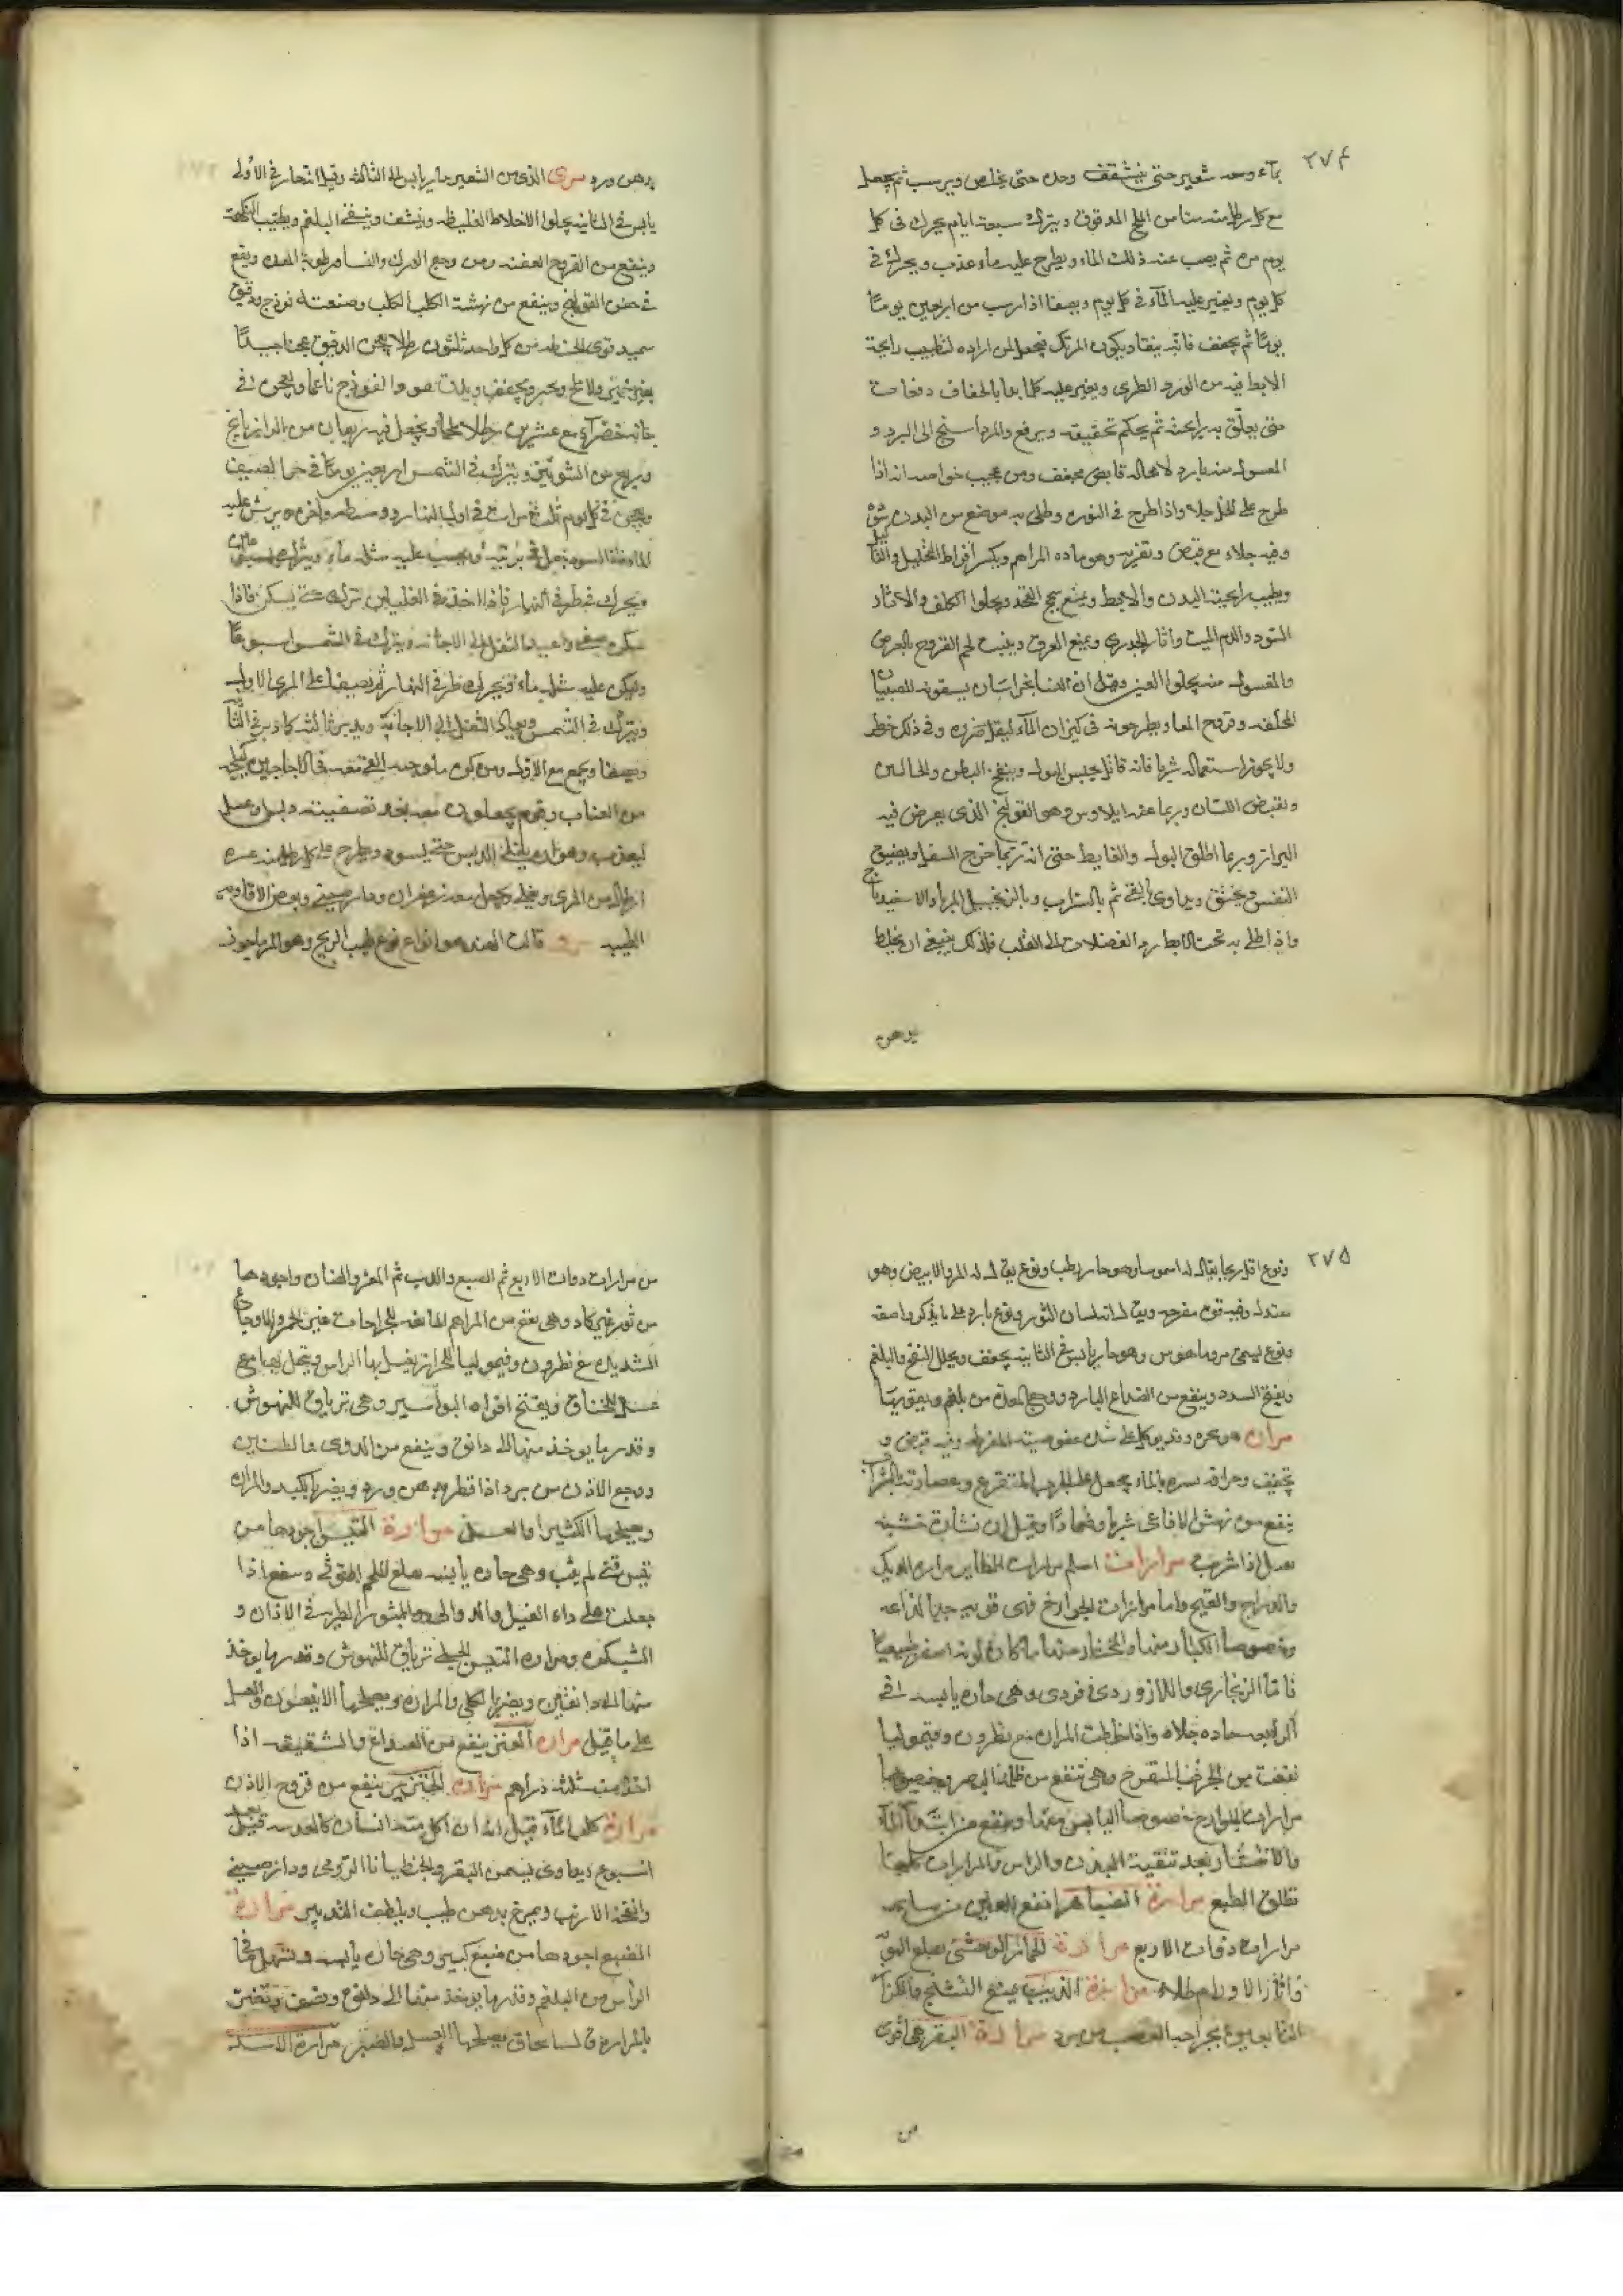 ٢٧٤
بماء وحده شعير حتى يتشقق وحده حتى يخلص ويرسب ثم يجعل
مع كل رطل منه منا من الملح المدقوق ويترك سبعة ايام يحرك فى كل
يوم مرة ثم يصب عنه ذلك الماء ويطرح عليه ماء عذب ويحرك فى
كل يوم ويغير عليه الماء فى كل يوم ويصفا اذا رسب من اربعين يوما
يوما ثم يجفف فانه ينقاد يكون المرتك فيجعل لمن اراده لتطييب رايحة
الابط فيه من الورد الطرى ويغير عليه كلما بالجفاف دفعات
حتى يعلق به رايحته ثم يحكم تحقيقه ويرفع والمرداسنج الى البرد و
المغسول منه بارد لا محاله قابض مجفف ومن عجيب خواصه انه اذا
طرح على الخل حلاه واذا طرح فى النوره وطلى به موضع من البدن سوده
وفيه جلاء مع قبض وتغريه وهو ماده المراهم ويكسر افراط التحليل والتاكيل
ويطيب رايحة البدن والابط ويمنع سحج الفخذ ويجلوا الكلف والاثار
السود والدم الميت واثار الجدرى ويمنع العرق وينبت لحم القروح
والمغسول منه يجلوا العين وقيل ان النسا بخراسان يسقونه للصبيان
لخلفه وقروح المعا ويطرحونه فى كيزان الماء ليقل ضرره وفى ذلك خطر
ولا يجوز استعماله شربا فانه قاتل يحبس البول وينفخ البطن والحالبين
ويقبض اللسان وربما عنه ايلاوس وهو القولنج الذى يعرض فيه
البراز وربما اطلق البول والغايط حتى انه ربما خرج السفل ويضيق
النفس ويخنق ويداوى بالقى ثم بالشراب وبالزنجبيل المربا والاسفيدباج
واذا طلى به تحت الابط رد الفضلات الى القلب فلذلك ينبغى ان يخلط
بدهن
بدهن ورد مرى الذى من الشعير حار يابس الى الثالثه وقيل انه حار فى الاولى
يابس فى الثانيه يجلوا الاخلاط الغليظه وينشف وينقى البلغم ويطيب النكهة
وينفع من القروح العفنه ومن وجع الورك والنسا رطوبة المعده ويقع
فى حقن القولنج وينفع من نهشة الكلب الكلب وصنعته فوذنج دقيق
سميد قوى الحنطه من كل واحد ثلثون رطلا يعجن الدقيق عجنا جيدا
بغير خمير ولا ملح ويخبز ويجفف ويدق هو والفوذنج ناعما ويعجن فى
خابيه خضرآء مع عشرين رطلا ملحا ويجعل فيه ربعان من الرازيانج
وربع من الشونيز ويترك فى الشمس اربعين يوما فى حما الصيف
ويعجن فى كل يوم ثلث مرات فى اول النهار ووسطه واخره ويرش عليه
الماء فاذا اسود يجعل فى برنيه ويصب عليه مثله ماء ويترك اسبوعين
ويحرك فى طرفى النهار فاذا اخذ فى الغليان ترك حتى يسكن فاذا
سكن صفى واعيد الثفل الى الاجانه ويترك فى الشمس اسبوعا
ويكن عليه مثله ماء ويحرك طرفى النهار ثم يصفى على المرى الاول
ويترك فى الشمس ويعاد الثفل الى الاجانة ويدبر ثالثه كما دبر فى الثانى
ويصفا ويجمع مع الاول
من العناب وقوم يجعلون معه بعد تصفيته دبسا وعسل
ليعذب وهو يغلى الدبس حتى يسود ويطرح على كل رطل منه عشره
ارطال من المرى ويغلى ويجعل معه زعفران ودارصينى وبعض الافاويه
الطيبه مرو قالت الهند هو انواع نوع طيب الريح وهو المرماحوز
٢٧٥
ونوع اقل ريحا يقال له اسموسا وهو حار رطب ونوع يقال له المرو الابيض وهو
معتدل وفيه قوه مفرحه ويقال له لسان الثور ونوع بارد على ما يذكر واصفه
ونوع يسمى مروماهوس وهو حار يابس فى الثانيه يجفف ويحلل النفخ والبلغم
ويفتح السدد وينفع من الصداع البارد ووجع المعدة من بلغم ويقويها
مران هو شجره وقد يوكل على شدة عفوصيته المفرطه وفيه قبض و
تجفيف وحراقه بالماء يجعل على الجرب المتقرع وعصارته بالشراب
ينفع من نهش الافاعى شربا وضمادا وقيل ان نشارة خشبه
تقتل اذا شربت مرارات اسلم مرارات الطاير مراره الديك
والدراج والقبج واما مرارات الجوارح فهى قويه جدا لذاعه
وخصوصا الكبار منها والمختار منها ما كان لونه اصفر طبيعيا
فاما الزنجارى واللازوردى فردى وهى حاره يابسه الى
الرابعه حاده جلاه واذا خلطت المراره مع نطرون وقيموليا
نفعت من الجرب المتقرح وهى تنفع من ظلمه البصر وخصوصا
مرارات الجوارح خصوصا اليابس منها وينفع من ابتداء الماء
والانتشار بعد تنقية البدن والراس والمرارات كلها
تطلق الطبع مرارة الضبا انفع للعين من سايه
مرارات ذوات الاربع مرارة الحمار الوحشى يقلع البهق
واثار الاورام طلاء مرارة الدب يمنع التشنج والكزاز
التابعين بجراحه العصب من برد مرارة البقر هى اقوى
من
من مرارات دوات الاربع ثم الضبع والدب ثم المعز والضان واجودها
من ثور غير كاد وهى تنفع من المراهم المانعه للجراحات عن الحمره والاوجاع
الشديده مع نطرون وقيموليا للحزاز يغسل بها الراس ويتحمل بها مع
عسل للخناق ويفتح افواه البواسير وهى ترياق للنهوش
وقدر ما يوخذ منها الى دانق وينفع من الدوى والطنين
ووجع الاذن من برد اذا قطر بدهن ورد ويضر بالكبد والمراره
ويصلحها الكثيرا والعسل مرارة التيس اجودها من
تيس فتى لم يثب وهى حاره يابسه تقلع اللحم التوثى وتنفع اذا
جعلت على داء الفيل والبثور الطريه فى الاذان و
الشبكور ومرارة التيس الجبلى ترياق للنهوش وقدر ما يوخذ
منها الى دانقين ويضر بالكلى والمراره ويصلحها الانيسون والعسل
على ما قيل مرارة العنز ينفع من الصداع والشقيقه اذا
اخذ منه ثلثة دراهم مرارة الخنزير ينفع من قروح الاذن
مرارة كلب الماء قيل انه ان اكل منه انسان كالعدسه قتل بعد
اسبوع ويداوى بسمن البقر والجنطيانا الرومى ودارصينى
وانفحة الارنب ويمرخ بدهن طيب ويلطف التدبير مرارة
الضبع اجودها من ضبع كبير وهى حاره يابسه
الراس من البلغم وقدر ما يوخذ منها الى دانق ونصف وتضر
بالمراره يصلحها العسل والصبر مرارة الاسد